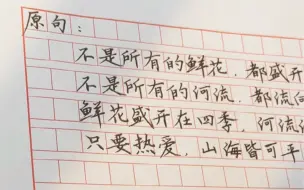 原句：
不是所有的鲜花，都盛开
不是所有的河流，都流向
鲜花盛开在四季，河流
只要热爱，山海皆可平